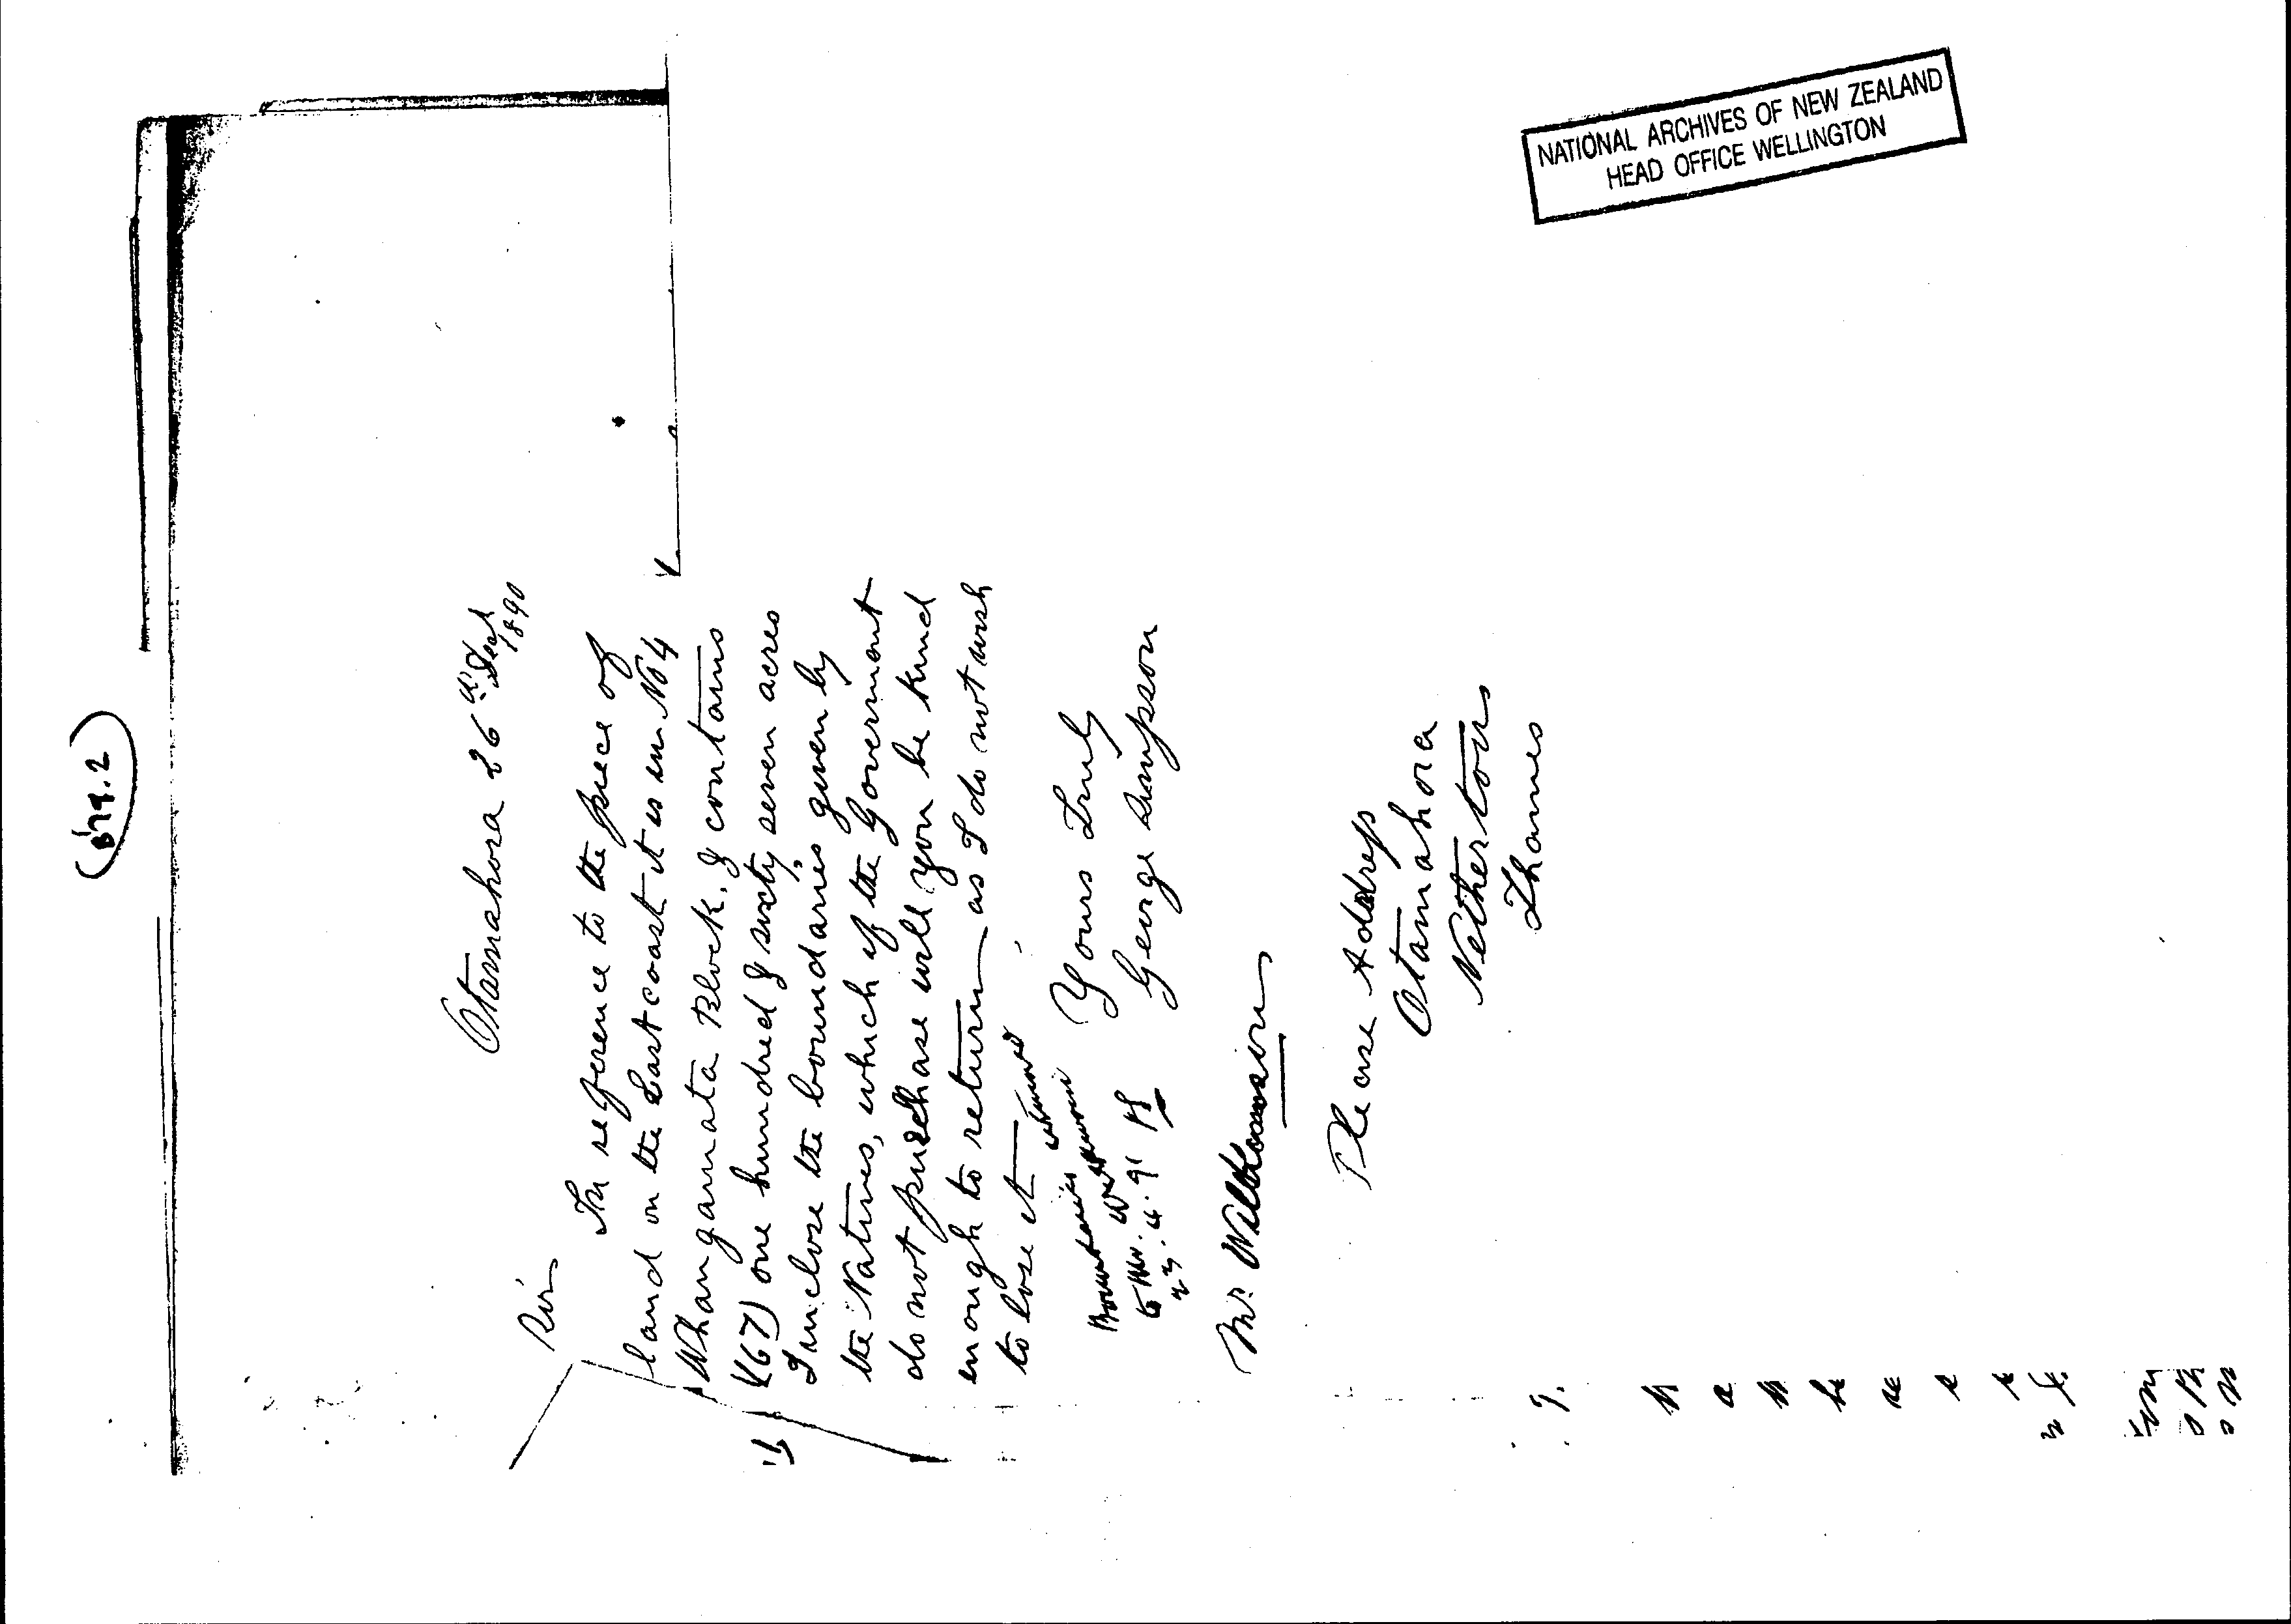 NATIONAL ARCHIVES OF NEW ZEALAND
HEAD OFFICE WELLINGTON
Otamahora 26th Sept
1890
Sir
In reference to the piece of
land on the East coast it is in No 4
Whangamata Block, & contains
(167) one hundred & sixty seven acres
I inclose the boundaries given by
the Natives, which if the Government
do not purchase will you be kind
enough to return as I do not wish
to lose it
Yours Truly
George Simpson
Boundaries
23.4.91
Mr. Wilkinson
Please Address
Otamahora
Netherton
Thames